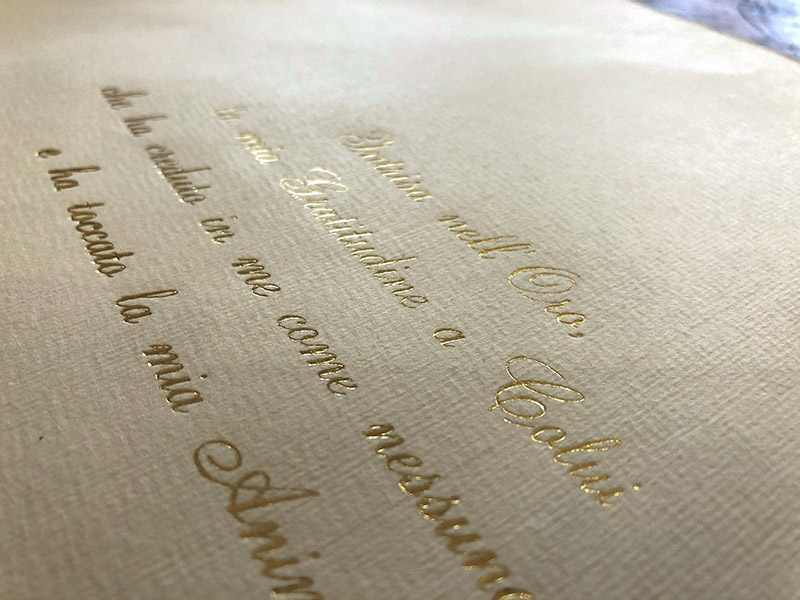 Intrisa nell' Oro,
la mia Gratitudine a Colui
che ha creduto in me come nessuno
e ha toccato la mia Anim